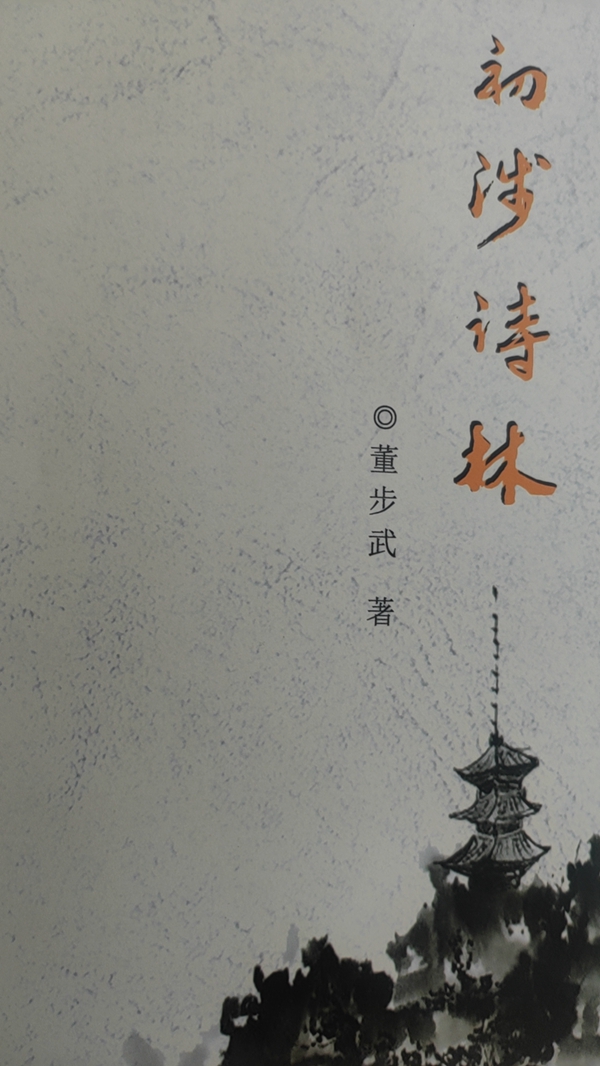 初涉诗林
◎董步武 著